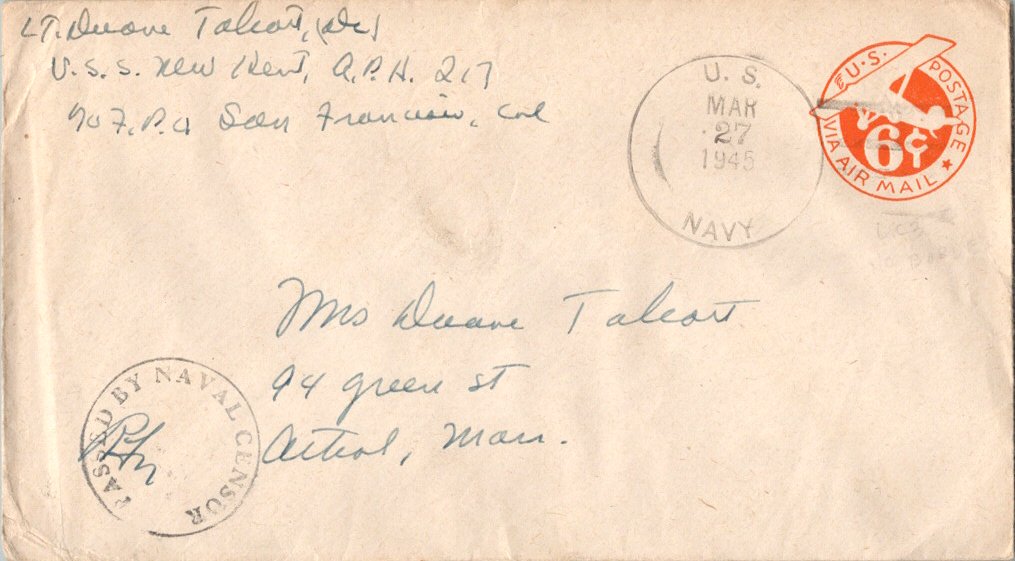 LT. Duane Talcott, (DC)
U.S.S. New Kent, A.P.A. 217
℅ F.P.O San Francisco, Cal
U.S.
MAR
27
1945
NAVY
U.S. POSTAGE
6¢
VIA AIR MAIL
Mrs Duane Talcott
94 Green St
Athol, Mass.
PASSED BY NAVAL CENSOR